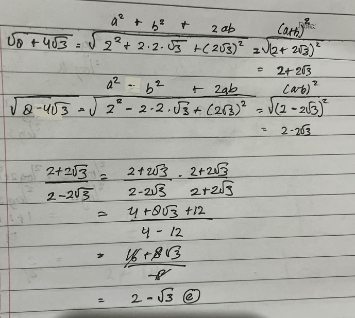 a² + b² + 2ab (a+b)²
√8 + 4√3 = √2² + 2·2·√3 + (2√3)² = √(2 + 2√3)²
= 2+2√3
a² - b² + 2ab (a-b)²
√8-4√3 = √2² - 2·2·√3 + (2√3)² = √(2 - 2√3)²
= 2-2√3
2+2√3 / 2-2√3 = 2+2√3 / 2-2√3 · 2+2√3 / 2+2√3
= 4 + 8√3 + 12 / 4 - 12
= 16 + 8√3 / -8
= 2 - √3 ⓔ